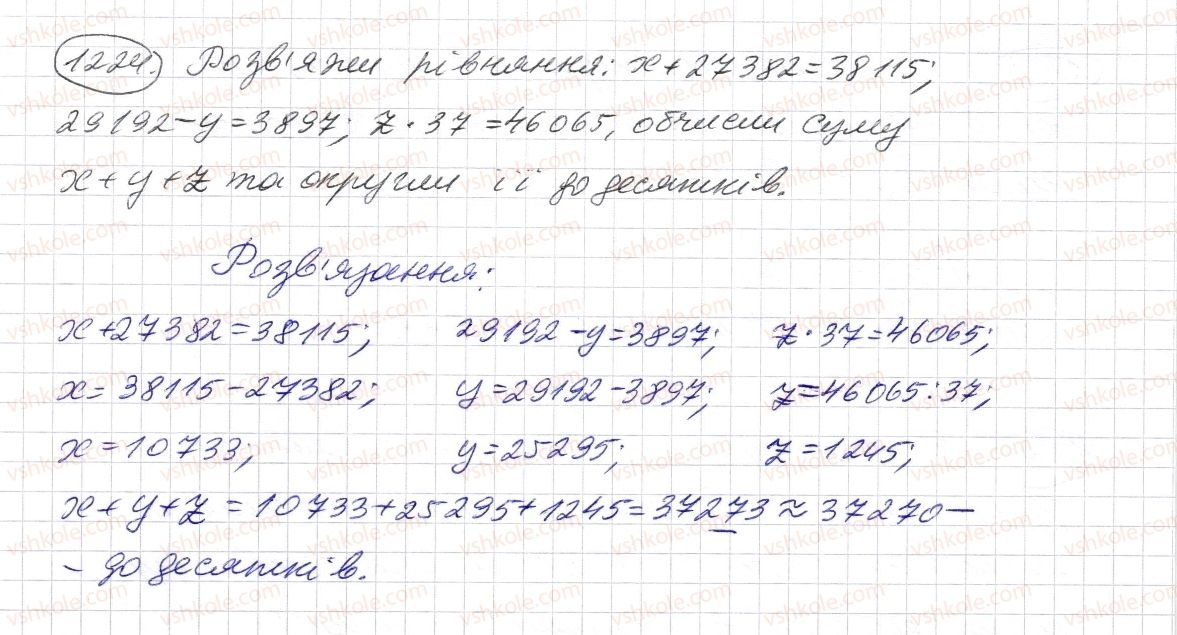 1224. Розв'яжи рівняння: x + 27382 = 38115;
29192 - y = 3897; z · 37 = 46065, обчисли суму
x + y + z та округли її до десятків.
Розв'язання:
x + 27382 = 38115; 29192 - y = 3897; z · 37 = 46065;
x = 38115 - 27382; y = 29192 - 3897; z = 46065 : 37;
x = 10733; y = 25295; z = 1245;
x + y + z = 10733 + 25295 + 1245 = 37273 ≈ 37270 -
- до десятків.